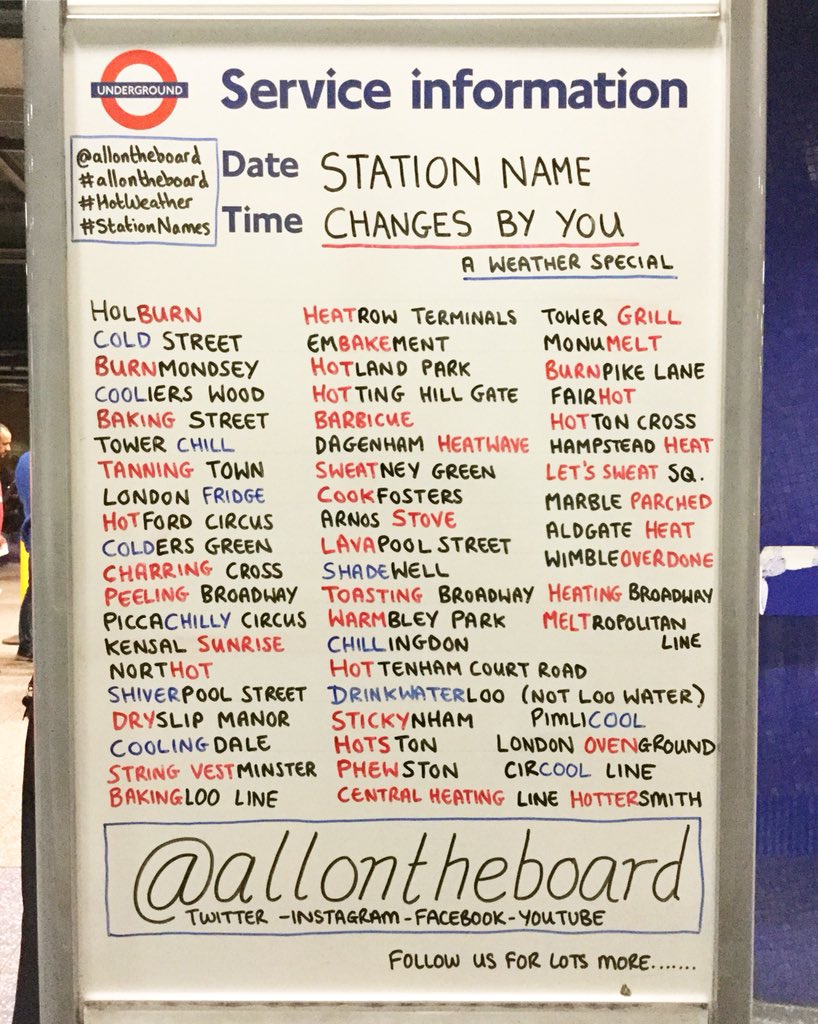 UNDERGROUND
Service information
@allontheboard
#allontheboard
#HotWeather
#StationNames
Date STATION NAME
Time CHANGES BY YOU
A WEATHER SPECIAL
HOLBURN
COLD STREET
BURNMONDSEY
COOLIERS WOOD
BAKING STREET
TOWER CHILL
TANNING TOWN
LONDON FRIDGE
HOTFORD CIRCUS
COLDERS GREEN
CHARRING CROSS
PEELING BROADWAY
PICCACHILLY CIRCUS
KENSAL SUNRISE
NORTHOT
SHIVERPOOL STREET
DRYSLIP MANOR
COOLINGDALE
STRING VESTMINSTER
BAKINGLOO LINE
HEATROW TERMINALS
EMBAKEMENT
HOTLAND PARK
HOTTING HILL GATE
BARBICUE
DAGENHAM HEATWAVE
SWEATNEY GREEN
COOKFOSTERS
ARNOS STOVE
LAVAPOOL STREET
SHADEWELL
TOASTING BROADWAY
WARMBLEY PARK
CHILLINGDON
HOTTENHAM COURT ROAD
DRINKWATERLOO (NOT LOO WATER)
STICKYNHAM
HOTSTON
PHEWSTON
CENTRAL HEATING LINE
TOWER GRILL
MONUMELT
BURNPIKE LANE
FAIRHOT
HOTTON CROSS
HAMPSTEAD HEAT
LET'S SWEAT SQ.
MARBLE PARCHED
ALDGATE HEAT
WIMBLEOVERDONE
HEATING BROADWAY
MELTROPOLITAN
LINE
PIMLICOOL
LONDON OVENGROUND
CIRCOOL LINE
HOTTERSMITH
@allontheboard
TWITTER - INSTAGRAM - FACEBOOK - YOUTUBE
FOLLOW US FOR LOTS MORE.......